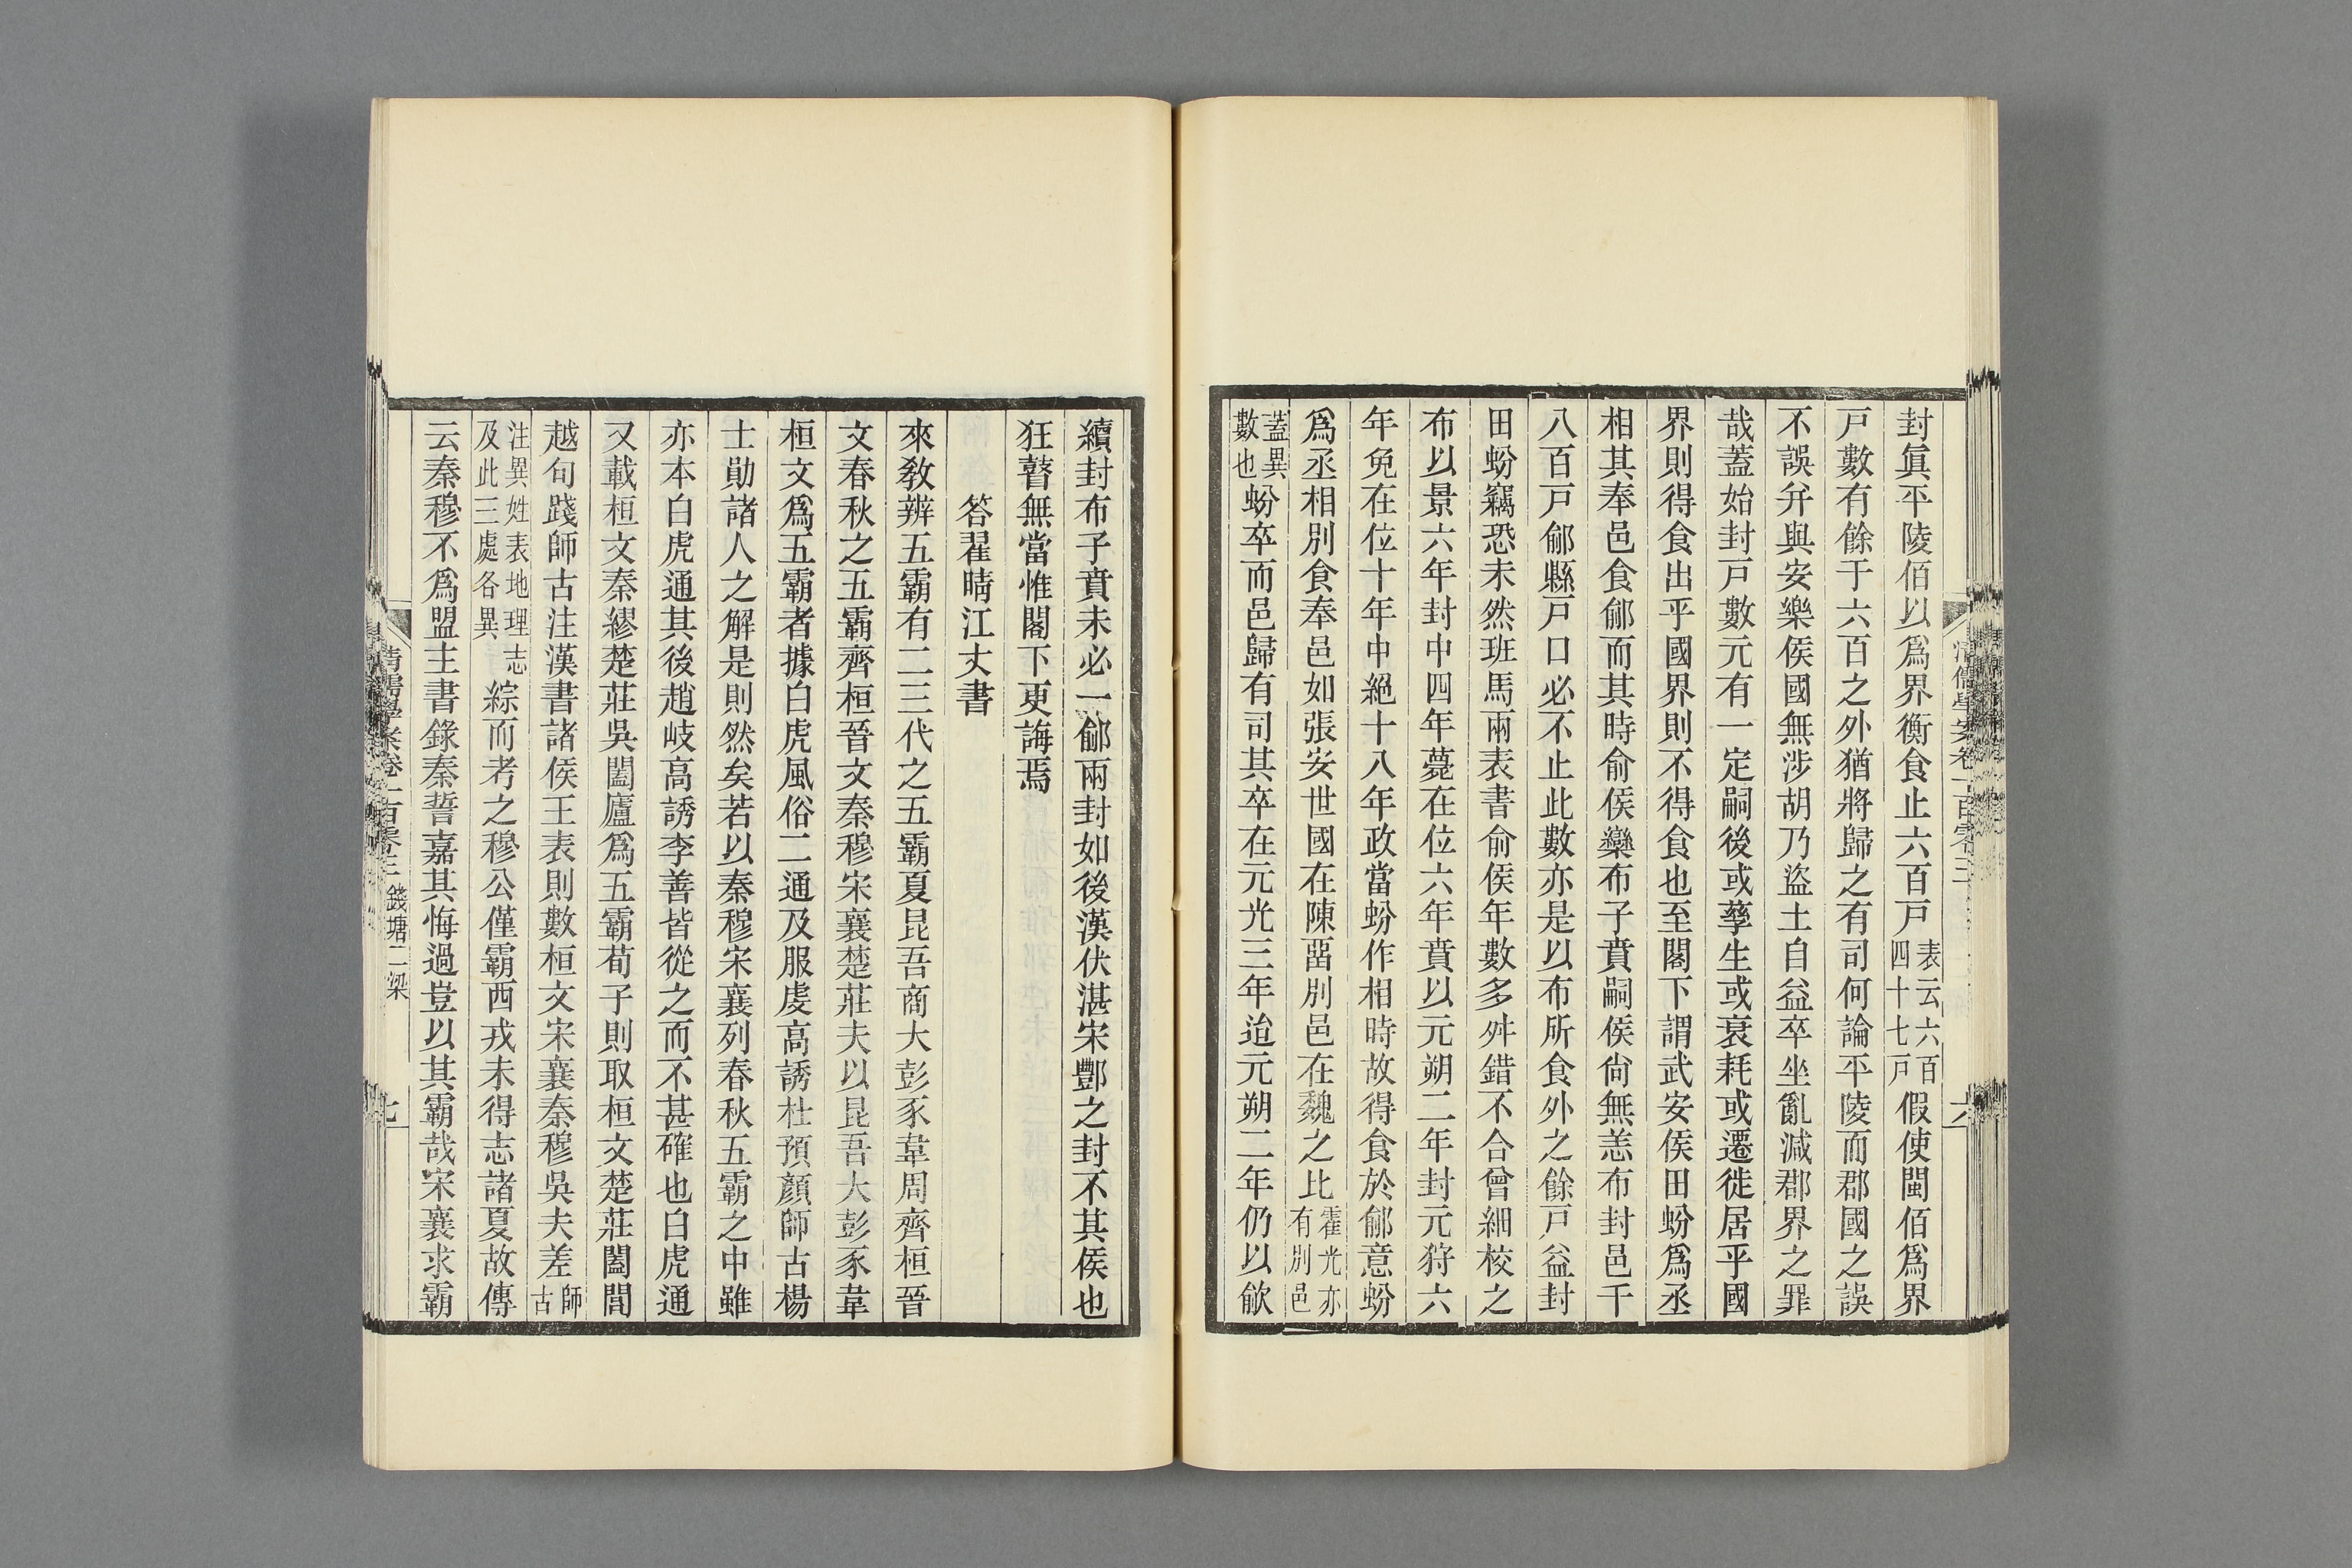 封眞平陵佰以爲界衡食止六百戸表云六百四十七戸假使閩佰爲界
戸數有餘于六百之外猶將歸之有司何論平陵而郡國之誤
不誤幷與安樂侯國無涉胡乃盜土自益卒坐亂減郡界之罪
哉蓋始封戸數元有一定嗣後或孳生或衰耗或遷徙居乎國
界則得食出乎國界則不得食也至閣下謂武安侯田蚡爲丞
相其奉邑食鄃而其時俞侯欒布子賁嗣侯尙無恙布封邑千
八百戸鄃縣戸口必不止此數亦是以布所食外之餘戸益封
田蚡竊恐未然班馬兩表書俞侯年數多舛錯不合曾細校之
布以景六年封中四年薨在位六年賁以元朔二年封元狩六
年免在位十年中絕十八年政當蚡作相時故得食於鄃意蚡
爲丞相別食奉邑如張安世國在陳畱別邑在魏之比霍光亦有別邑
蓋異數也蚡卒而邑歸有司其卒在元光三年迨元朔二年仍以鄃
續封布子賁未必一鄃兩封如後漢伏湛宋酆之封不其侯也
狂瞽無當惟閣下更誨焉
答翟晴江丈書
來敎辨五霸有二三代之五霸夏昆吾商大彭豕韋周齊桓晉
文春秋之五霸齊桓晉文秦穆宋襄楚莊夫以昆吾大彭豕韋
桓文爲五霸者據白虎風俗二通及服虔高誘杜預顏師古楊
士勛諸人之解是則然矣若以秦穆宋襄列春秋五霸之中雖
亦本白虎通其後趙岐高誘李善皆從之而不甚確也白虎通
又載桓文秦繆楚莊吳闔廬爲五霸荀子則取桓文楚莊闔閭
越句踐師古注漢書諸侯王表則數桓文宋襄秦穆吳夫差師古
注異姓表地理志及此三處各異綜而考之穆公僅霸西戎未得志諸夏故傳
云秦穆不爲盟主書錄秦誓嘉其悔過豈以其霸哉宋襄求霸
清儒學案卷二百零三
六
錢塘二梁
七